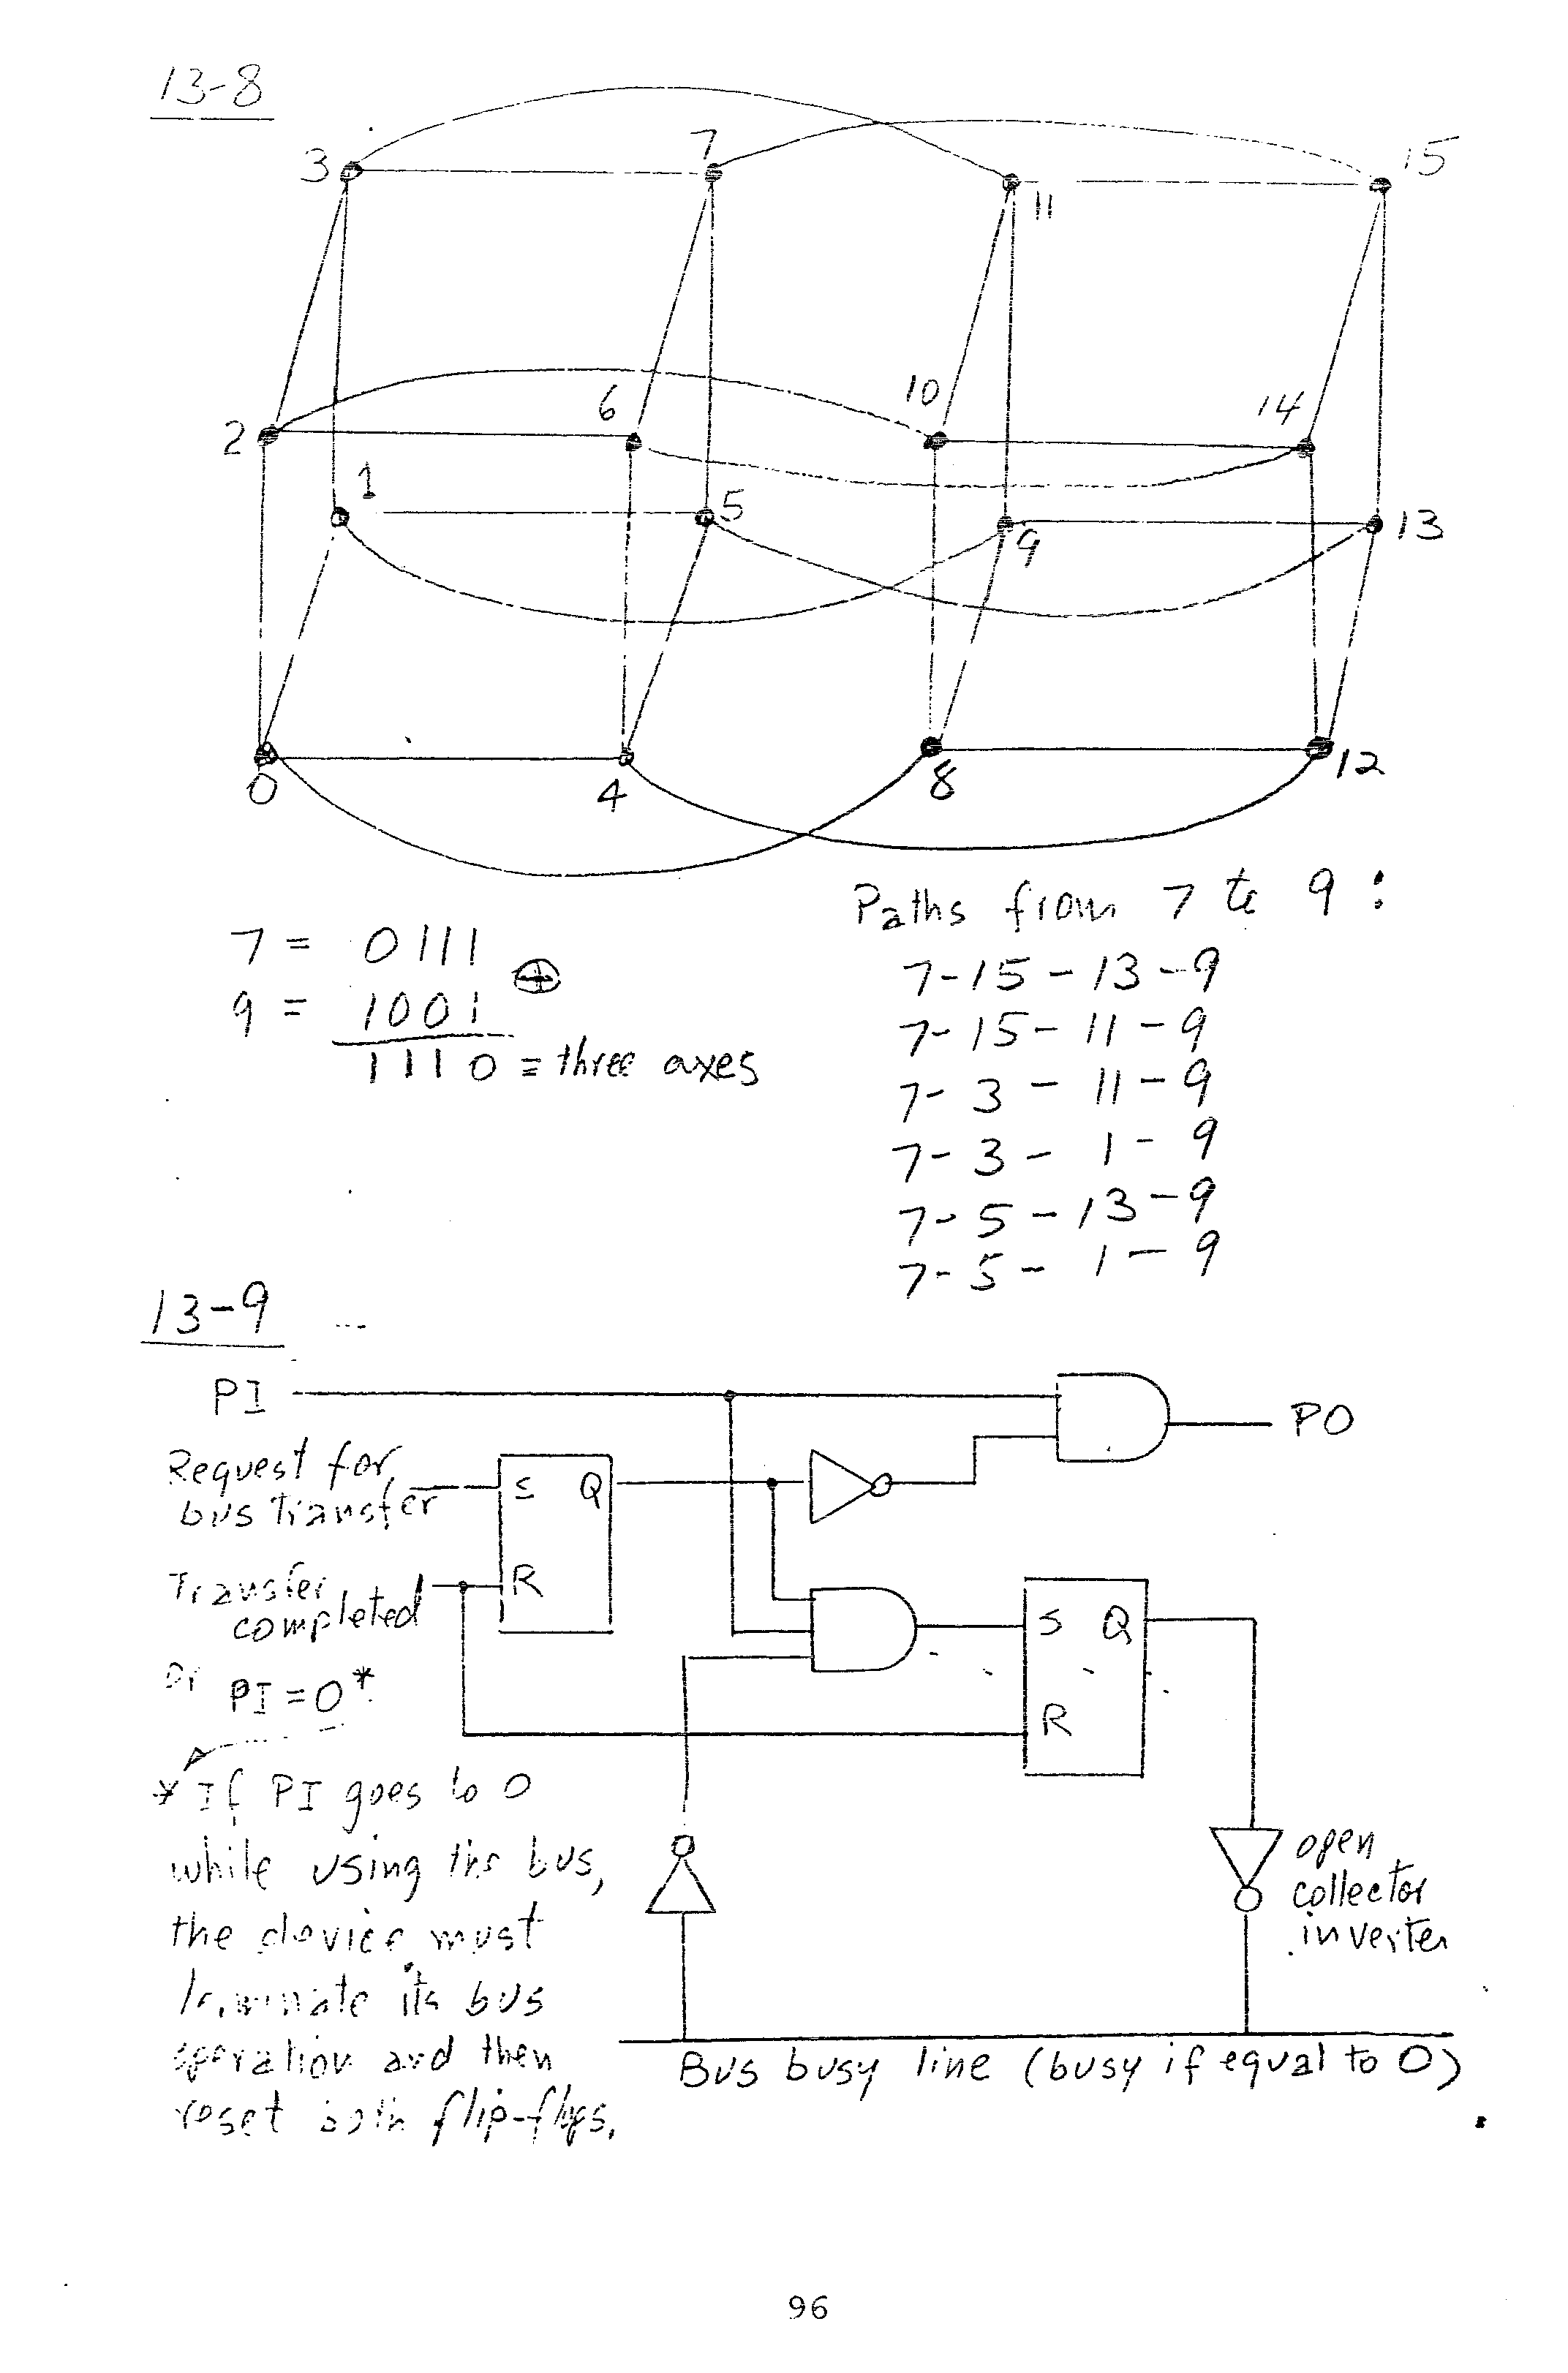 13-8
3
7
11
15
2
6
10
14
1
5
9
13
0
4
8
12
7 = 0111
⊕
9 = 1001
1110 = three axes
Paths from 7 to 9 :
7-15-13-9
7-15-11-9
7-3-11-9
7-3-1-9
7-5-13-9
7-5-1-9
13-9
PI
PO
Request for
bus transfer
S Q
R
Transfer
completed
or PI = 0*
S Q
R
* If PI goes to 0
while using the bus,
the device must
terminate its bus
operation and then
reset both flip-flops.
open
collector
inverter
Bus busy line (busy if equal to 0)
96